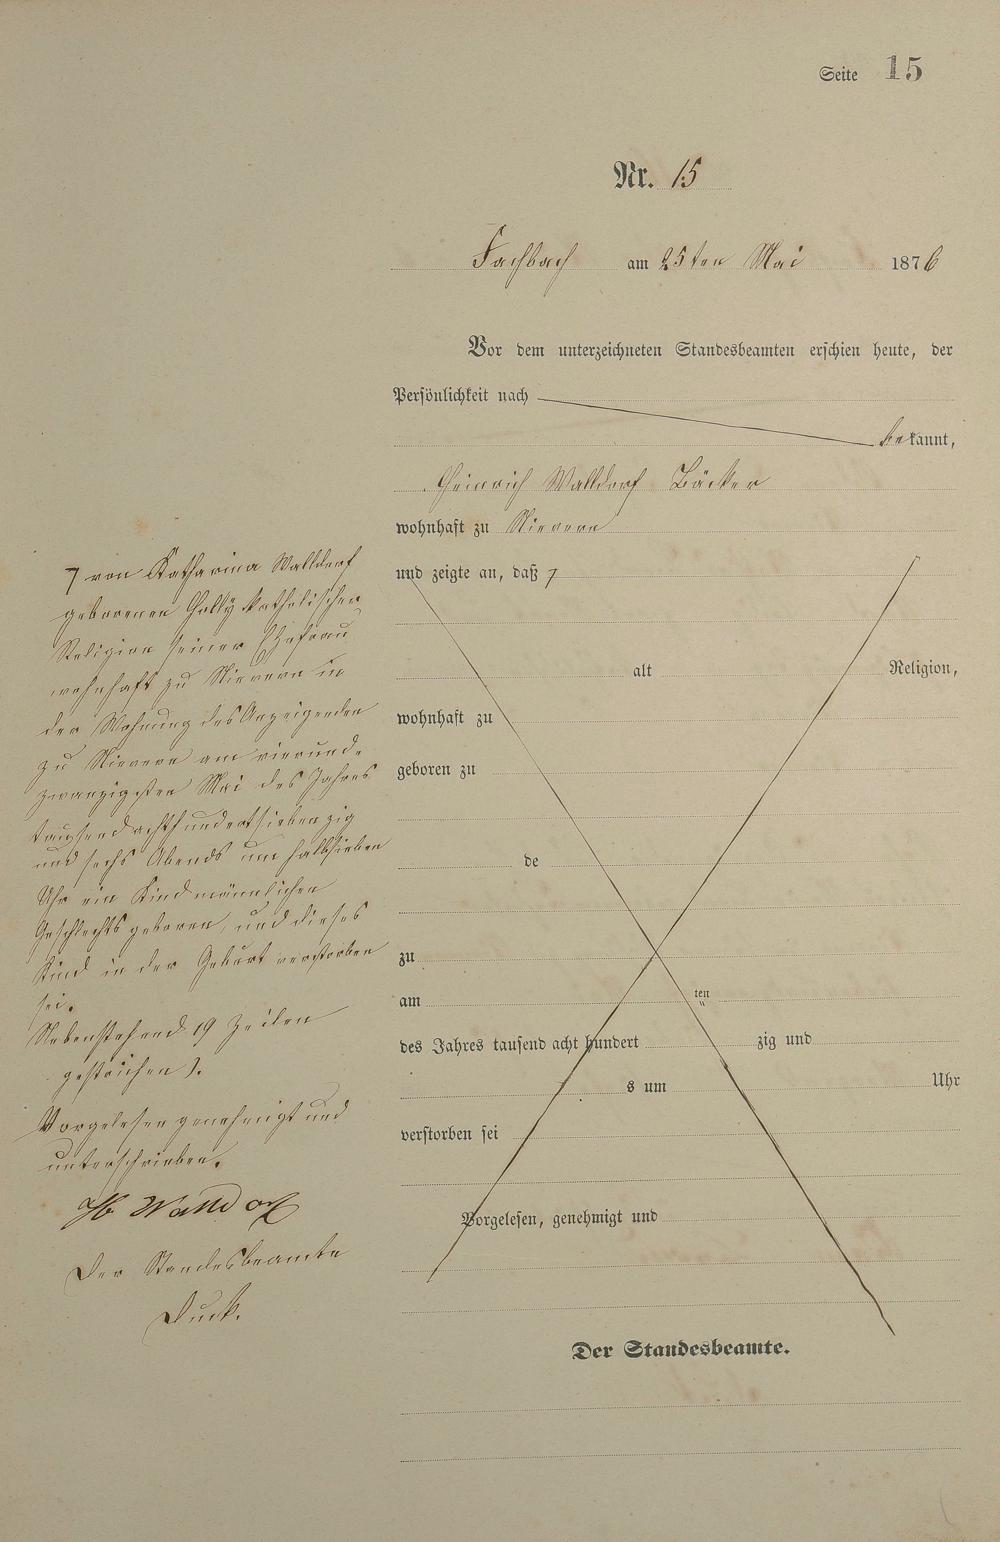 Seite 15
Nr. 15
Fachbach am 25ten Mai 1876
Vor dem unterzeichneten Standesbeamten erschien heute, der
Persönlichkeit nach
bekannt,
Heinrich Walldorf Bäcker
wohnhaft zu Nievern
und zeigte an, daß ┐
┐ von Katharina Walldorf
geborenen katholischer
Religion seiner Ehefrau
wohnhaft zu Nievern in
der Wohnung des Anzeigenden
zu Nievern am vierund-
zwanzigsten Mai des Jahres
tausendachthundertsiebenzig
und sechs Abends um halbsieben
Uhr ein Kind männlichen
Geschlechts geboren, und dieses
Kind in der Geburt verstorben
sei.
Nebenstehend 19 Zeilen
gestrichen).
Vorgelesen genehmigt und
unterschrieben.
Hh Walldorf
Der Standesbeamte
Duck.
alt Religion,
wohnhaft zu
geboren zu
de
zu
am ten
des Jahres tausend acht hundert zig und
s um Uhr
verstorben sei
Vorgelesen, genehmigt und
Der Standesbeamte.